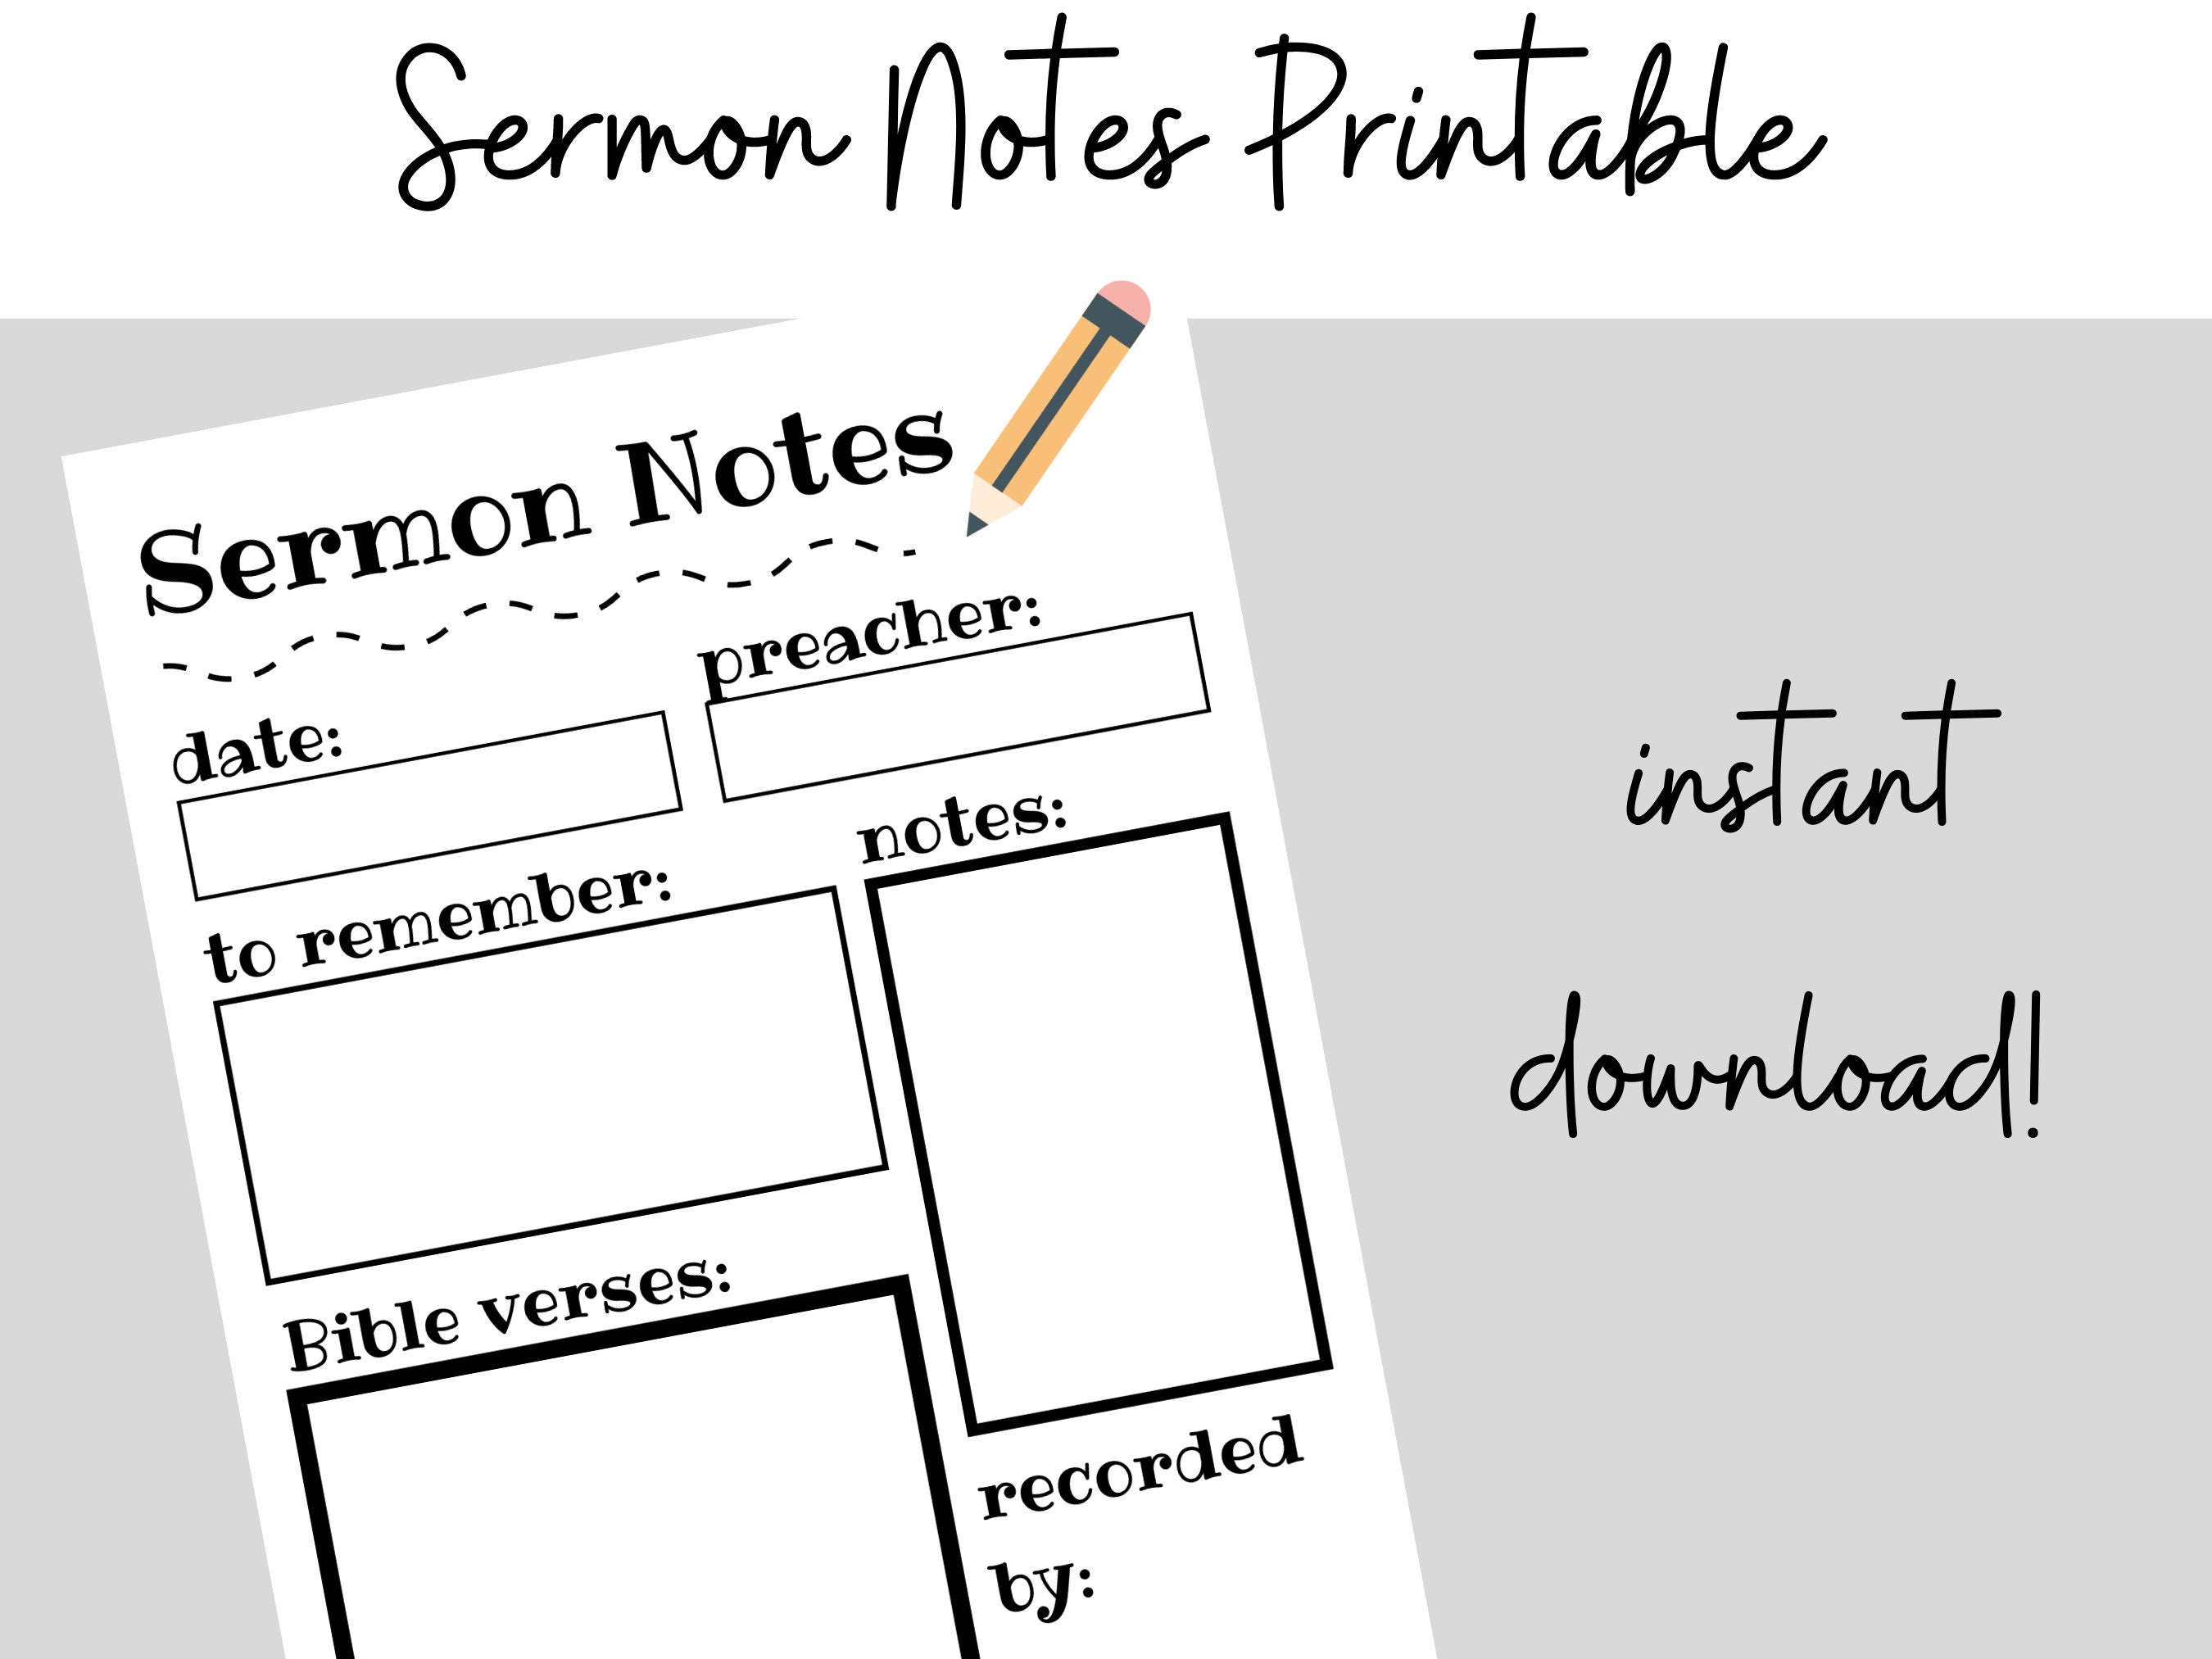 Sermon Notes Printable
Sermon Notes
date:
preacher:
to remember:
notes:
Bible verses:
recorded
by:
instant
download!